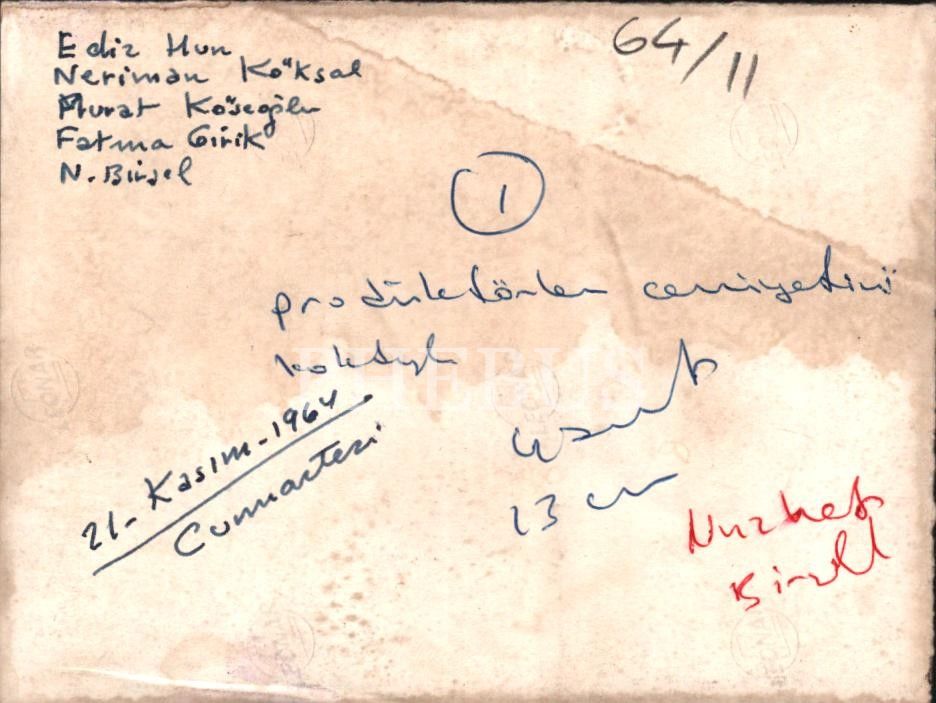 Ediz Hun
Neriman Köksal
Murat Köseoğlu
Fatma Girik
N. Birsel
64/11
1
prodüktörler cemiyetini
kokteyli
PHEBUS
21-Kasım-1964
Cumartesi
13 cm
Nuzhet
Birsel